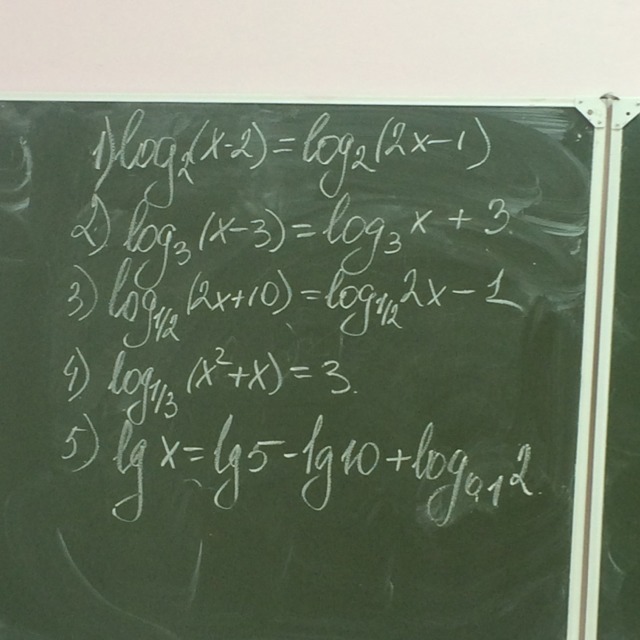 1) log₂(x-2) = log₂(2x-1)
2) log₃(x-3) = log₃x + 3
3) log₁/₂(2x+10) = log₁/₂2x - 1
4) log₁/₃(x²+x) = 3.
5) lg x = lg5 - lg10 + log₀,₁2.